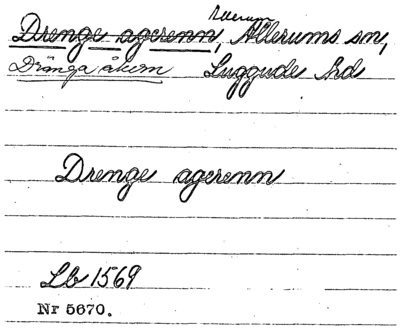 Allerum
Drenge agerenn, Allerums sn,
Dränga åkern Luggude hd
Drenge agerenn
Lb 1569
Nr 5670.